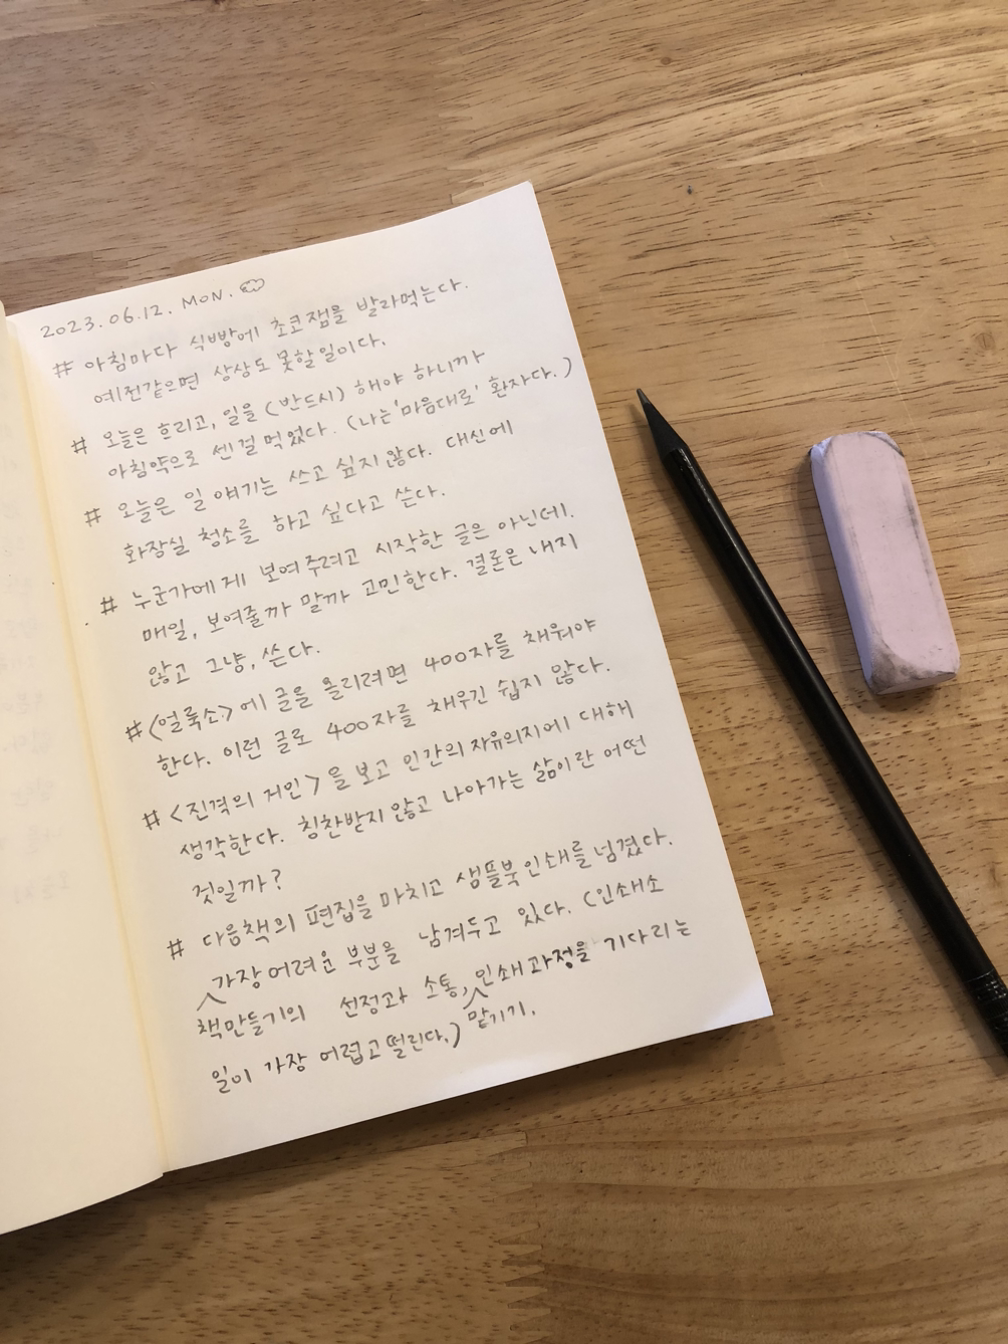 2023.06.12. MON.
# 아침마다 식빵에 초코잼을 발라먹는다.
예전같으면 상상도 못할일이다.
# 오늘은 흐리고, 일을 (반드시) 해야 하니까
아침약으로 센걸 먹었다. (나는 '마음대로' 환자다.)
# 오늘은 일 얘기는 쓰고 싶지 않다. 대신에
화장실 청소를 하고 싶다고 쓴다.
# 누군가에게 보여주려고 시작한 글은 아닌데.
매일, 보여줄까 말까 고민한다. 결론은 내지
않고 그냥, 쓴다.
# <얼룩소>에 글을 올리려면 400자를 채워야
한다. 이런 글로 400자를 채우긴 쉽지 않다.
# <진격의 거인>을 보고 인간의 자유의지에 대해
생각한다. 칭찬받지 않고 나아가는 삶이란 어떤
것일까?
# 다음책의 편집을 마치고 샘플북 인쇄를 넘겼다.
가장 어려운 부분을 남겨두고 있다. (인쇄소
책만들기의 선정과 소통, 인쇄과정을 기다리는
맡기기,
일이 가장 어렵고 떨린다.)